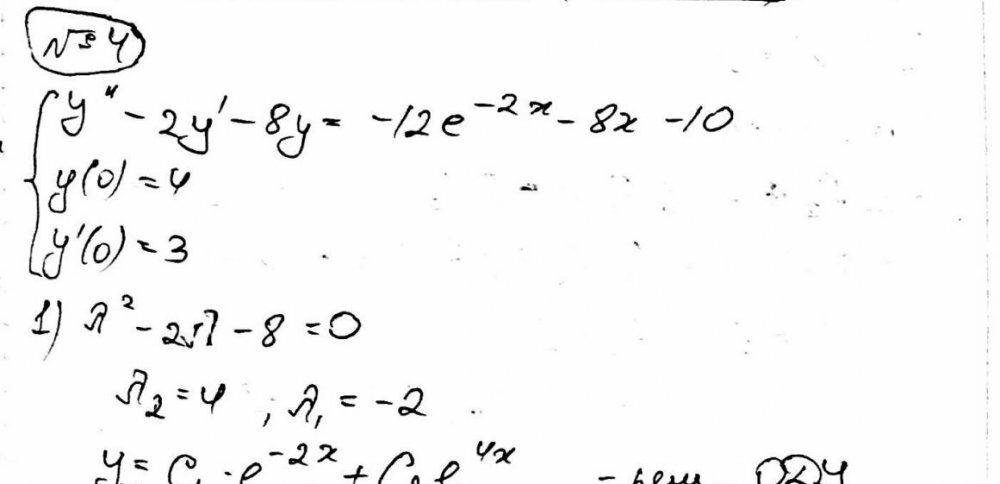 № 4
y'' - 2y' - 8y = -12e^{-2x} - 8x - 10
y(0) = 4
y'(0) = 3
1) λ² - 2λ - 8 = 0
λ₂ = 4 , λ₁ = -2
y = C₁ · e^{-2x} + C₂ e^{4x} - реш. ОДУ